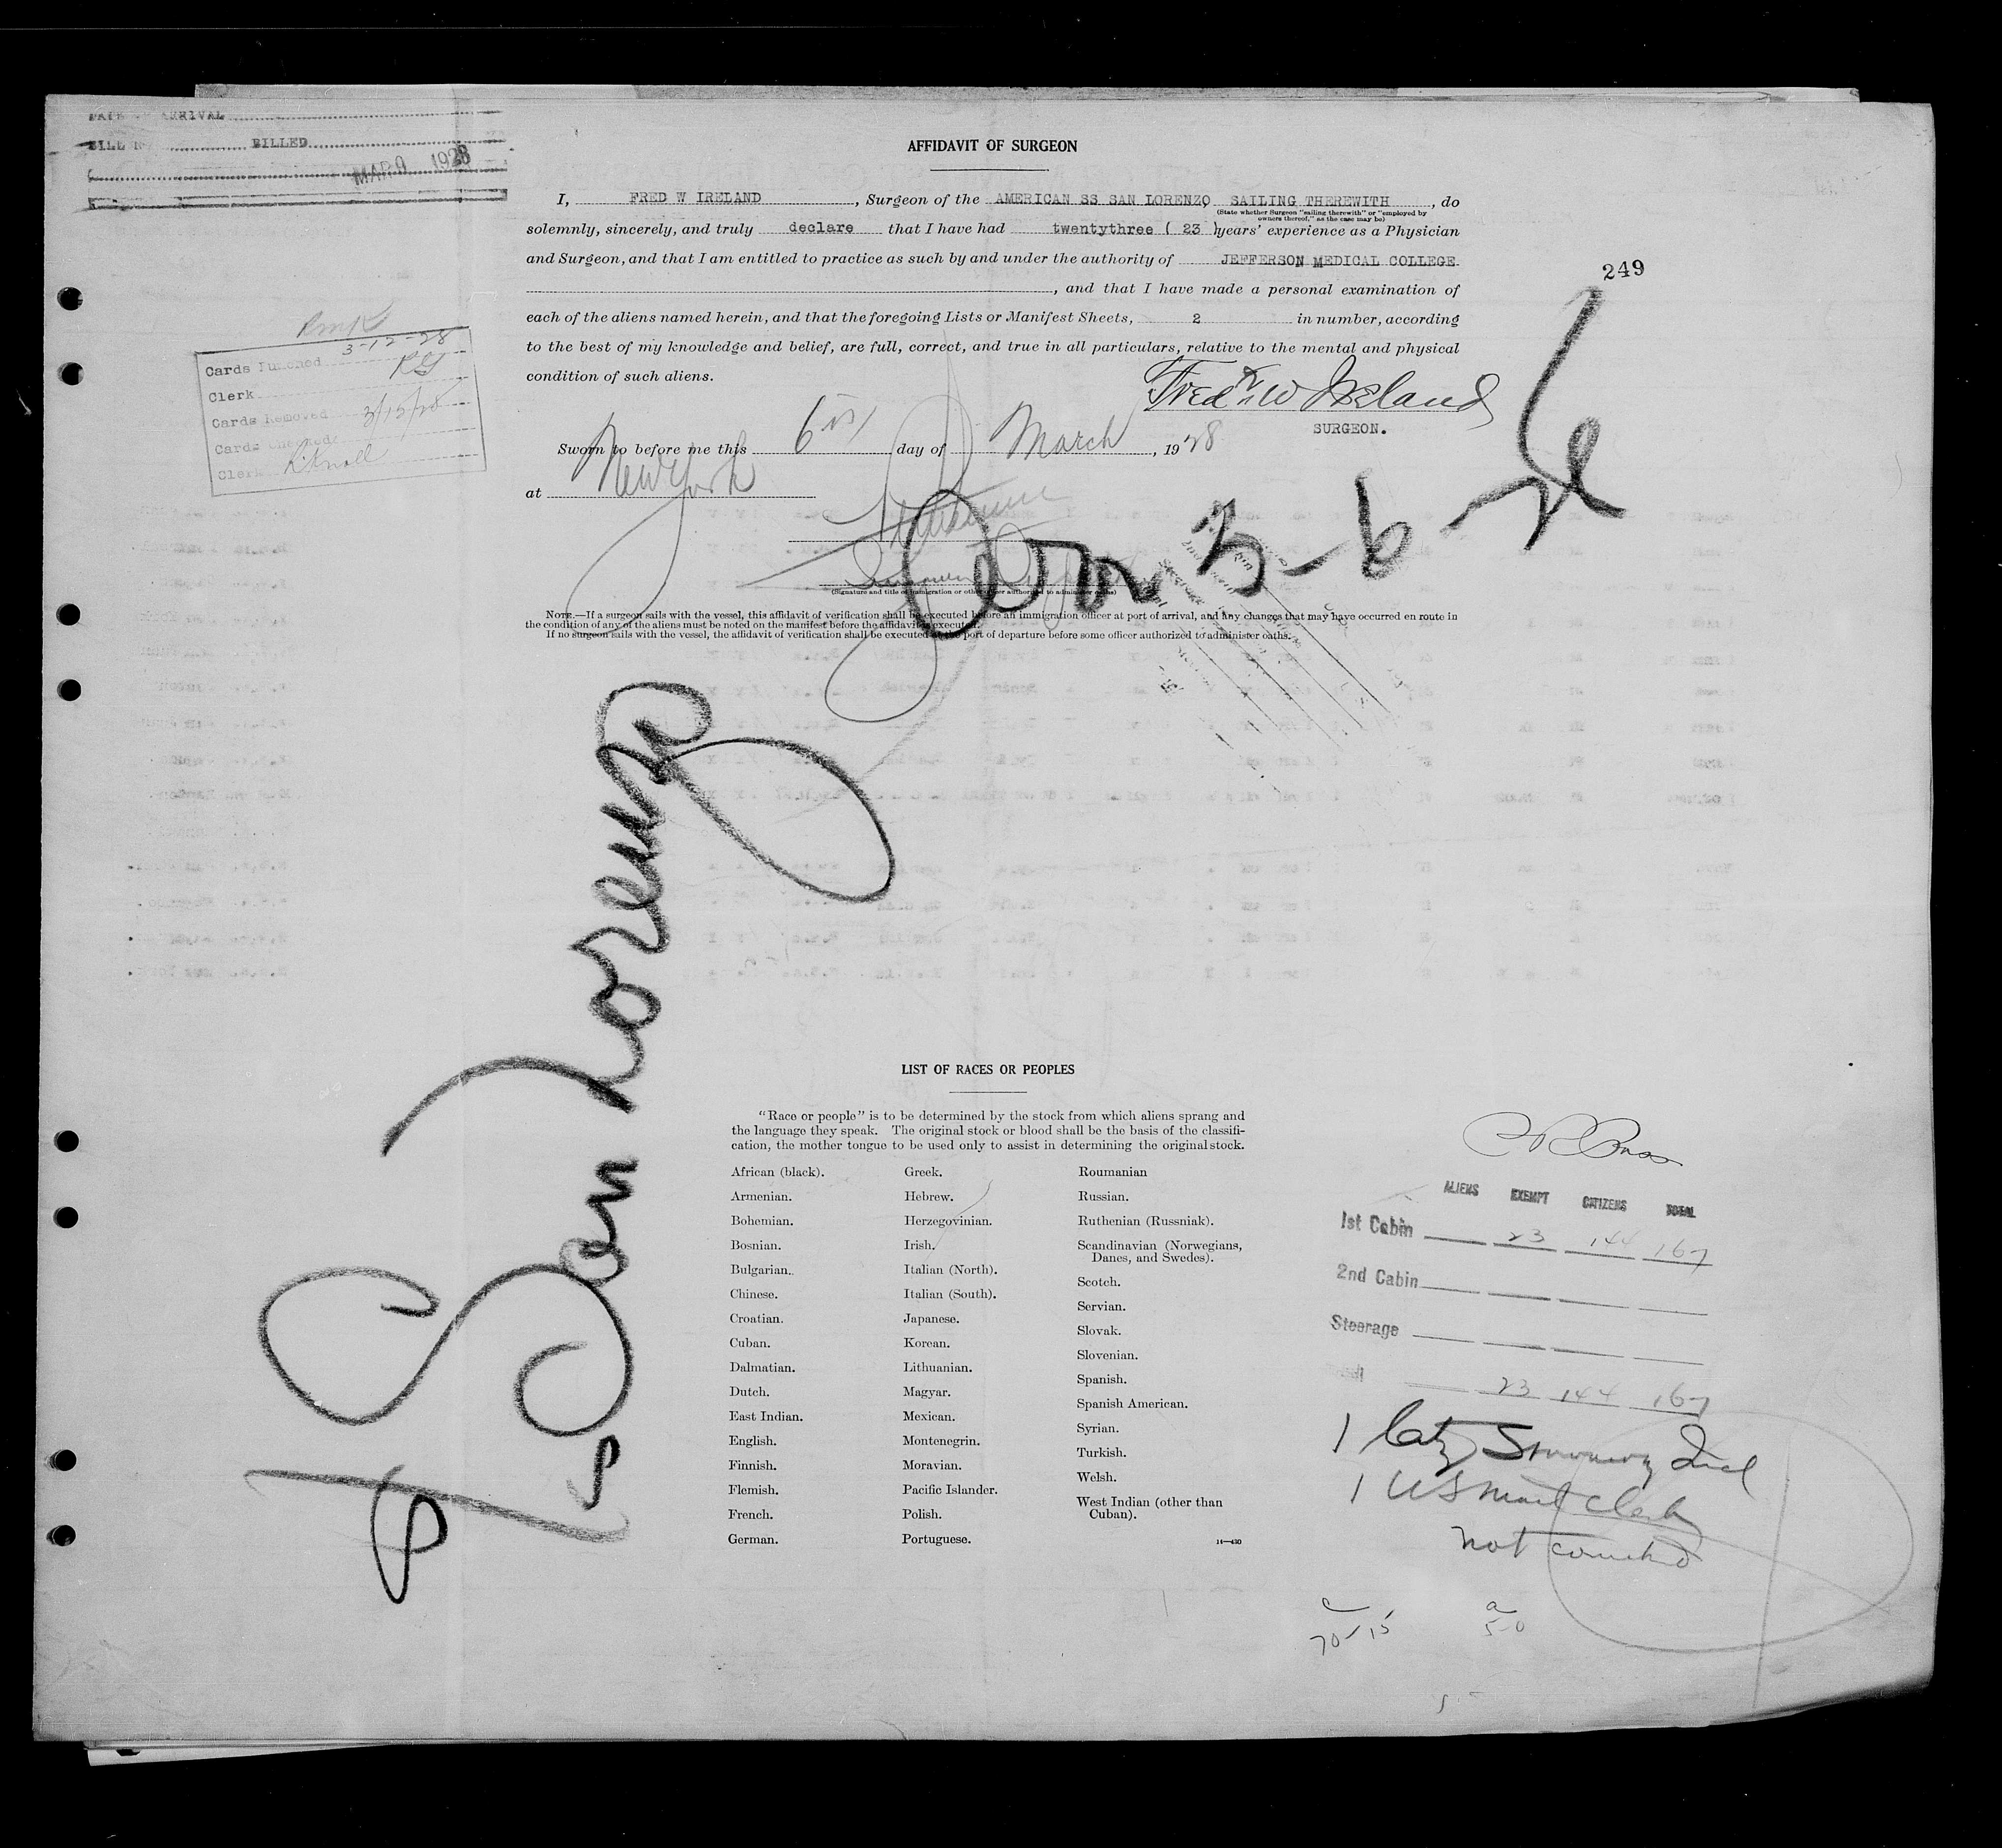 ARRIVAL
BILLED
MAR 9 1928
AFFIDAVIT OF SURGEON
I, FRED W IRELAND, Surgeon of the AMERICAN SS SAN LORENZO SAILING THEREWITH, do
(State whether Surgeon "sailing therewith" or "employed by
owners thereof," as the case may be)
solemnly, sincerely, and truly declare that I have had twentythree ( 23 )years' experience as a Physician
and Surgeon, and that I am entitled to practice as such by and under the authority of JEFFERSON MEDICAL COLLEGE
, and that I have made a personal examination of
249
each of the aliens named herein, and that the foregoing Lists or Manifest Sheets, 2 in number, according
to the best of my knowledge and belief, are full, correct, and true in all particulars, relative to the mental and physical
condition of such aliens.
Fred W Ireland
SURGEON.
Sworn to before me this 6 day of March, 1928
at New York
(Signature and title of immigration or other officer authorized to administer oaths)
NOTE.—If a surgeon sails with the vessel, this affidavit of verification shall be executed before an immigration officer at port of arrival, and any changes that may have occurred en route in
the condition of any of the aliens must be noted on the manifest before the affidavit is executed.
If no surgeon sails with the vessel, the affidavit of verification shall be executed at the port of departure before some officer authorized to administer oaths.
Cards Punched 3-12-28
Clerk
Cards Removed 3/12/28
Cards Checked
Clerk K Knoll
3-6-28
SS San Lorenzo
LIST OF RACES OR PEOPLES
"Race or people" is to be determined by the stock from which aliens sprang and
the language they speak. The original stock or blood shall be the basis of the classifi-
cation, the mother tongue to be used only to assist in determining the original stock.
African (black).
Armenian.
Bohemian.
Bosnian.
Bulgarian.
Chinese.
Croatian.
Cuban.
Dalmatian.
Dutch.
East Indian.
English.
Finnish.
Flemish.
French.
German.
Greek.
Hebrew.
Herzegovinian.
Irish.
Italian (North).
Italian (South).
Japanese.
Korean.
Lithuanian.
Magyar.
Mexican.
Montenegrin.
Moravian.
Pacific Islander.
Polish.
Portuguese.
Roumanian
Russian.
Ruthenian (Russniak).
Scandinavian (Norwegians,
Danes, and Swedes).
Scotch.
Servian.
Slovak.
Slovenian.
Spanish.
Spanish American.
Syrian.
Turkish.
Welsh.
West Indian (other than
Cuban).
14—430
ALIENS EXEMPT CITIZENS TOTAL
1st Cabin 23 144 167
2nd Cabin
Steerage
23 144 167
1
1 US Mail Clerk
not counted
70-15
50